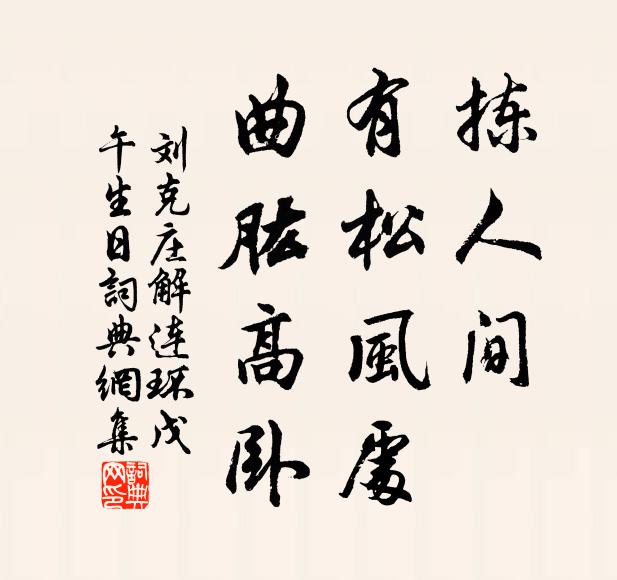 拣人间
有松風處
曲肱高卧
刘克庄解连环戊
午生日詞典網集
詞典
网印